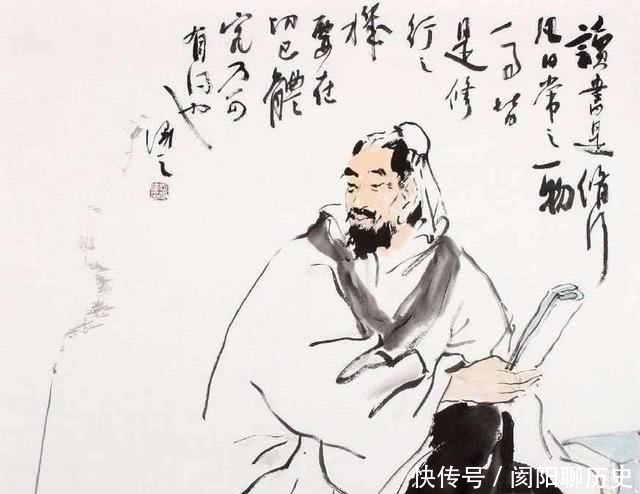 讀書是脩行
日常之一物
一事皆
是修
行之
機
要在
切己體
究乃可
有得也
快传号/阂阳聊历史